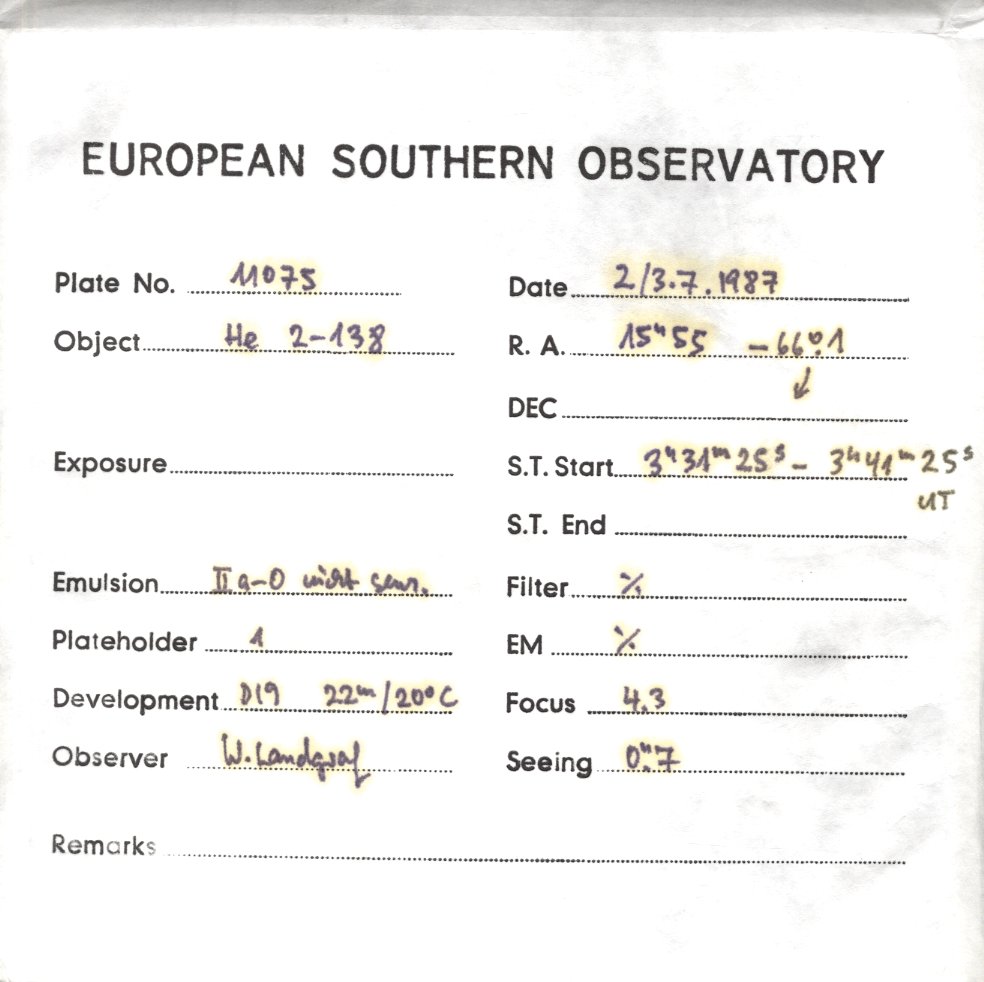 EUROPEAN SOUTHERN OBSERVATORY
Plate No. 11075
Date 2/3.7.1987
Object He 2-138
R. A. 15h55 -66°.1
DEC
Exposure
S.T. Start 3h31m25s - 3h41m25s
UT
S.T. End
Emulsion IIa-O nicht sens.
Filter %
Plateholder 1
EM %
Development D19 22m/20°C
Focus 4.3
Observer W. Landgraf
Seeing 0".7
Remarks